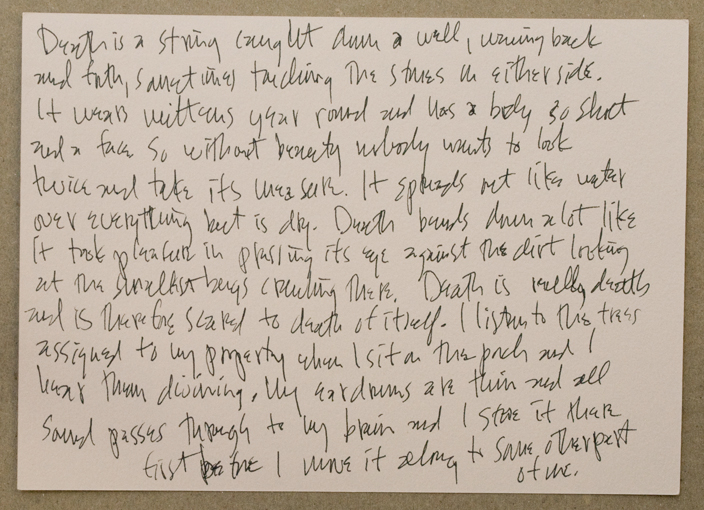 Death is a string caught down a well, waving back
and forth, sometimes touching the stones on either side.
It wears mittens year round and has a body so short
and a face so without beauty nobody wants to look
twice and take its measure. It spreads out like water
over everything but is dry. Death bends down a lot like
it took pleasure in pressing its eye against the dirt looking
at the smallest bugs crawling there. Death is really death
and is therefore scared to death of itself. I listen to the trees
assigned to my property when I sit on the porch and I
hear them divining. My eardrums are thin and all
sound passes through to my brain and I store it there
first before I move it along to some other part
of me.